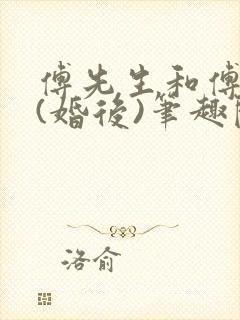 傅先生和傅
(婚後)筆趣
洛俞